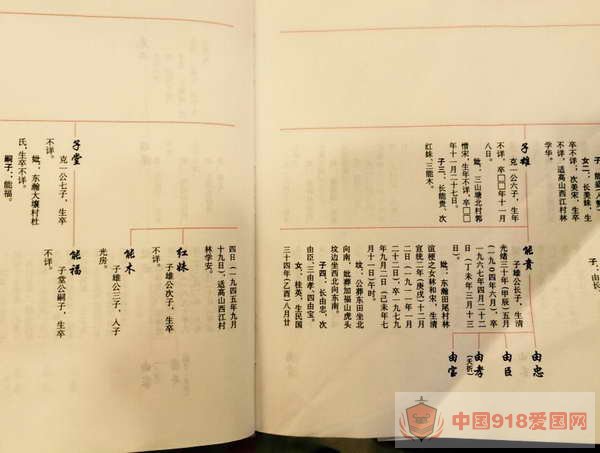 女二，长美妹，生
卒不详；次美宋，生卒
不详，适高山西江村林
学华。
子，由长
子雄
克一公六子，生年
不详，卒□□年十一月
八日。
妣，三山塘北村郭
惜宋，生年不详，卒□□
年十一月二十七日。
子三，长能贵、次
红妹、三能木。
能贵
子雄公长子，生清
光绪三十年（甲辰）五月
（一九〇四年六月），卒
一九六七年四月二十二
日（丁未年三月十三
日）。
妣，东瀚田尾村林
谊梗之女林和宋，生清
宣统二年（庚戌）十二月
二十二日（一九一一年一月
二十二日），卒一九七九
年九月二日（己未年七
月十一日）午时。
坟，公葬东田坐北
向南，妣葬加福山虎头
坟边坐西北向东南。
子四，长由忠、次
由臣、三由孝、四由宝。
女，桂英，生民国
三十四年（乙酉）八月廿
由忠
由臣
由孝
（夭折）
由宝
四日（一九四五年九月
十九日），适高山西江村
林学安。
红妹
子雄公次子，生卒
不详。
能木
子雄公三子，入子
光房。
子堂
克一公七子，生卒
不详。
妣，东瀚大壤村杜
氏，生卒不详。
嗣子：能福。
能福
子堂公嗣子，生卒
不详。
中国918爱国网